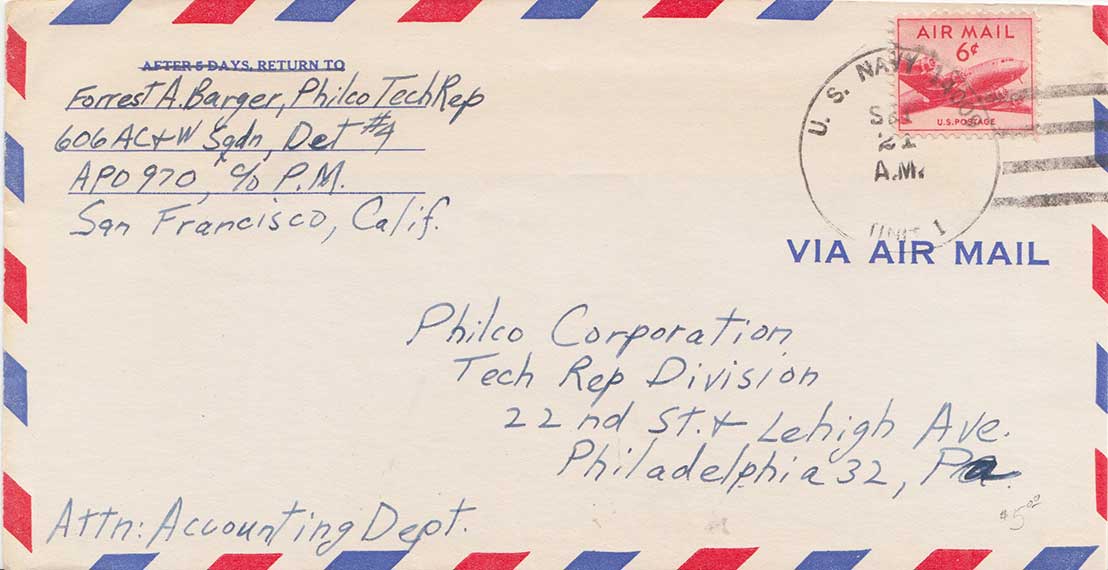 AFTER 5 DAYS, RETURN TO
Forrest A. Barger, Philco Tech Rep
606 AC+W Sqdn, Det #4
APO 970, c/o P.M.
San Francisco, Calif.
AIR MAIL
6¢
U.S. POSTAGE
U. S. NAVY
21
A.M.
UNIT 1
VIA AIR MAIL
Philco Corporation
Tech Rep Division
22nd St. + Lehigh Ave.
Philadelphia 32, Pa.
Attn: Accounting Dept.
$5.00